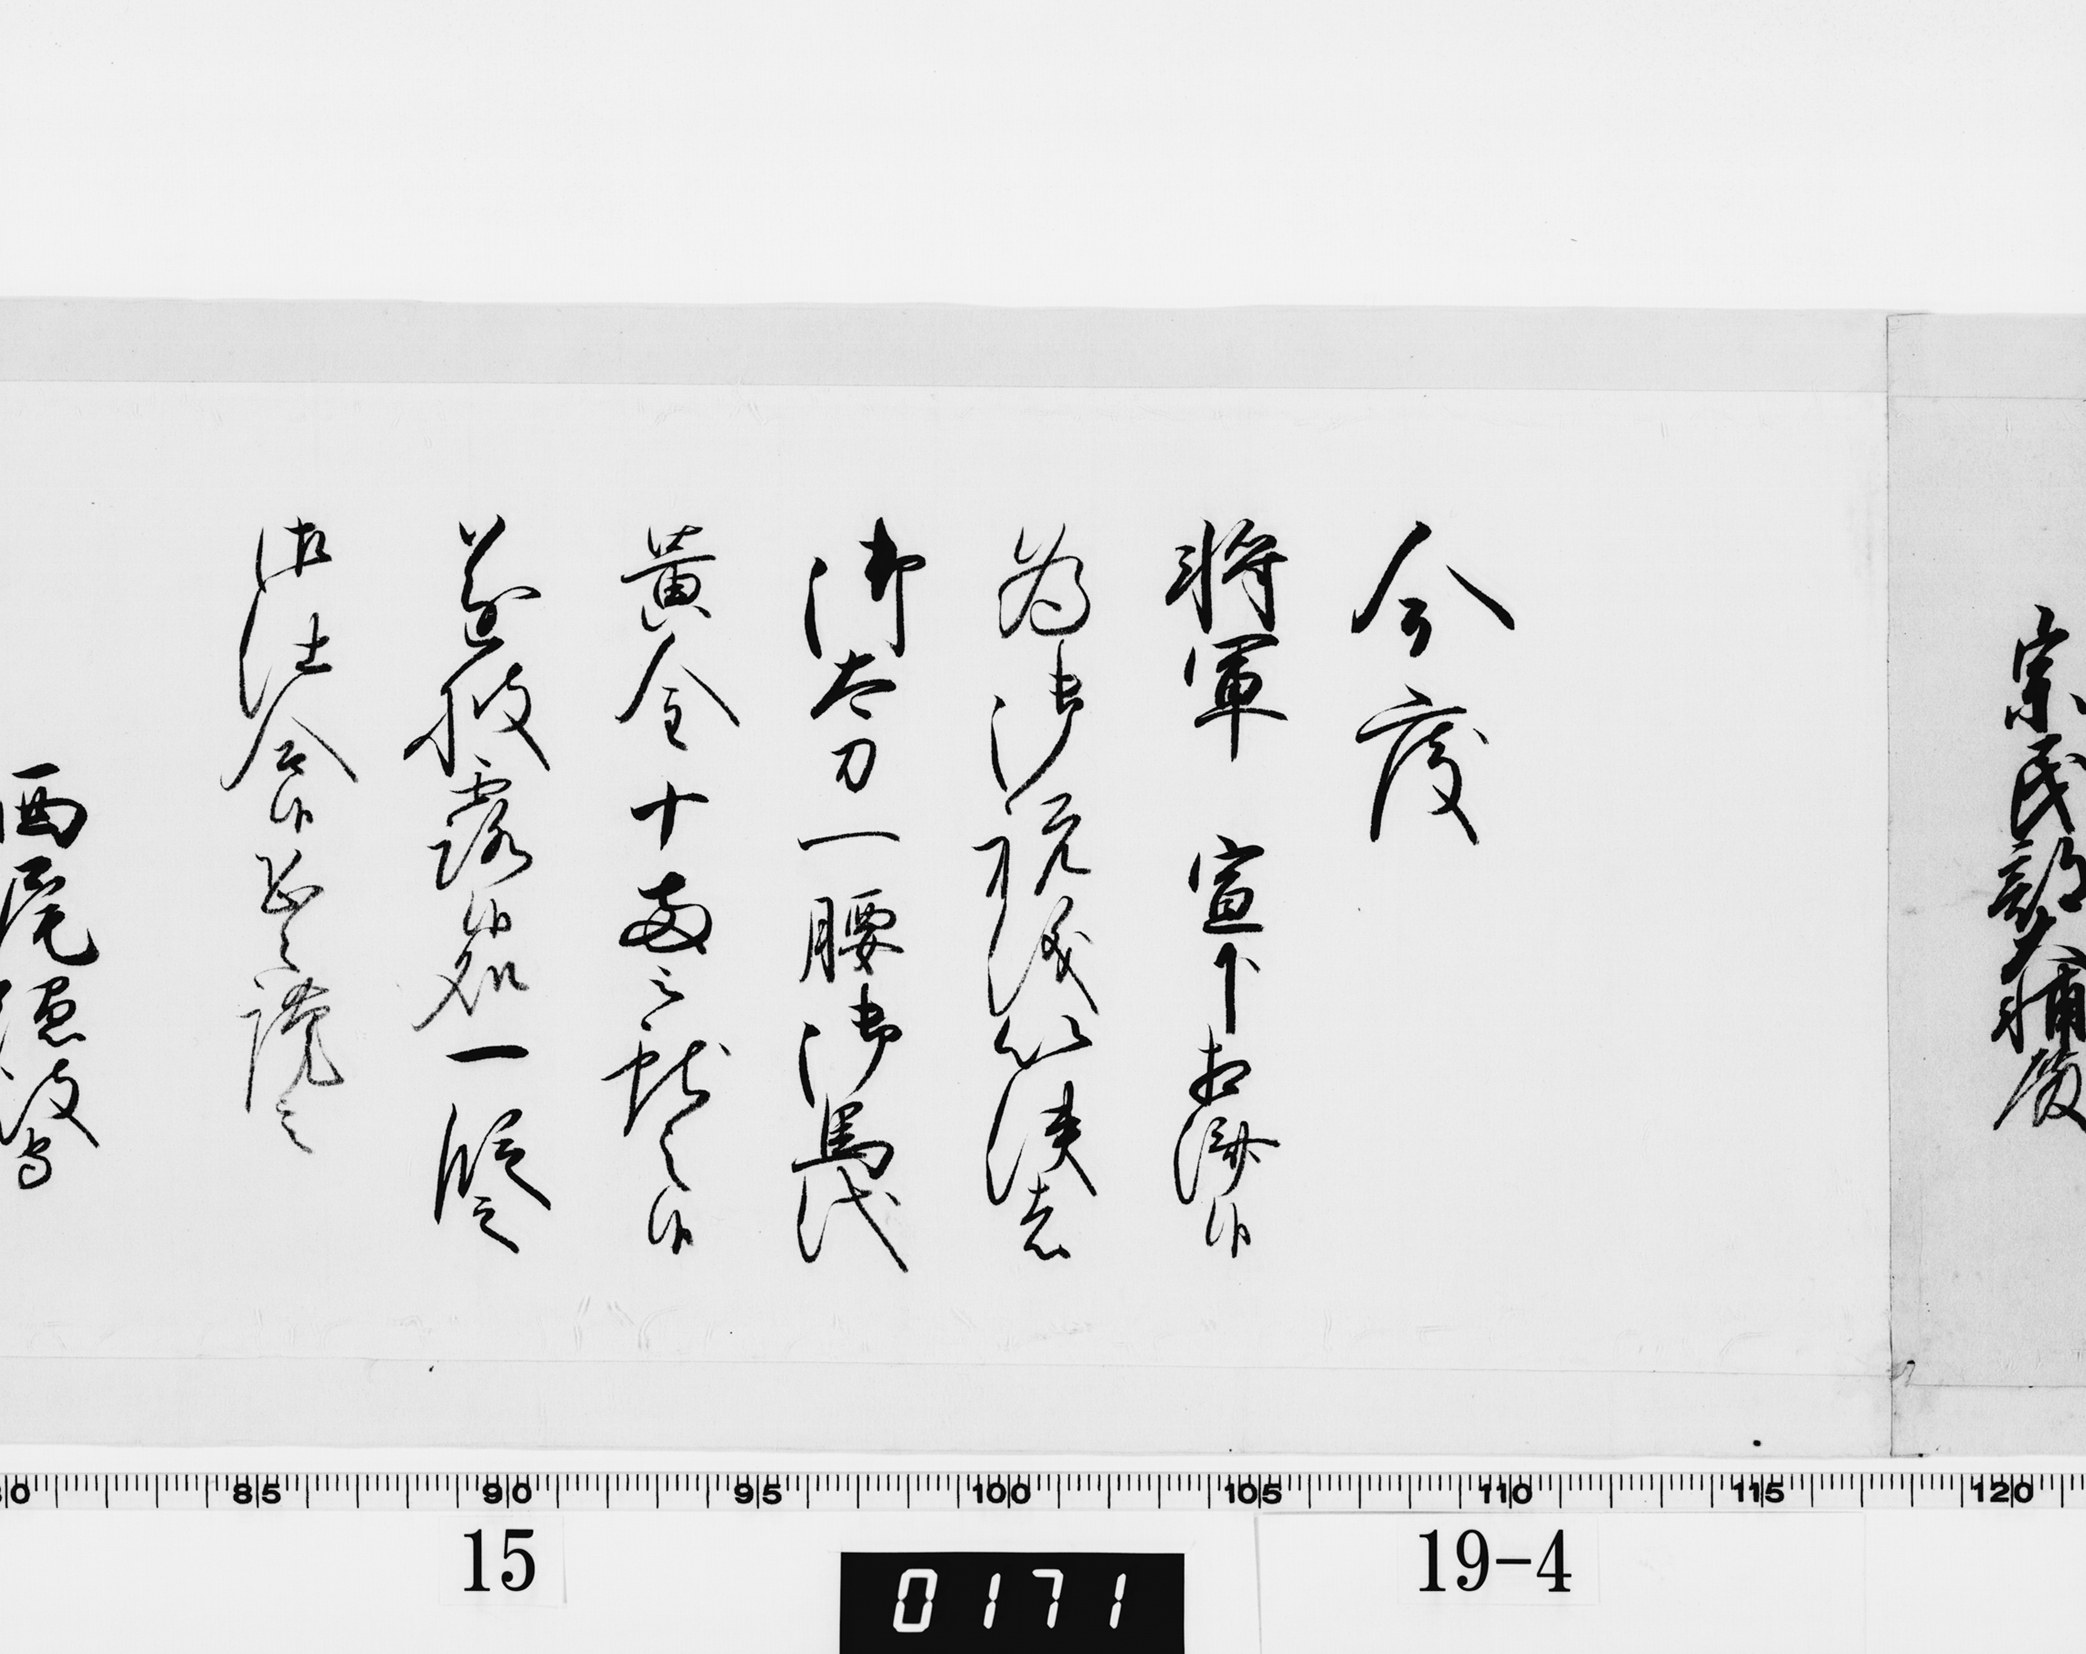 宗民部大輔殿
今度
将軍　宣下相済候
為御祝儀以使者
御太刀一腰御馬代
黄金十両之献之候
遂披露候処一段之
御仕合候恐々謹言
西尾隠岐守
80 85 90 95 100 105 110 115 120
15
0171
19-4